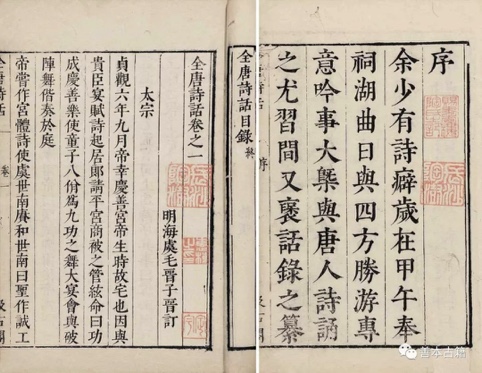 序
余少有詩癖歲在甲午奉
祠湖曲日與四方勝游專
意吟事大槩與唐人詩誦
之尤習間又裒話錄之纂
全唐詩話 序
全唐詩話目錄
全唐詩話卷之一
明海虞毛晉子晉訂
太宗
貞觀六年九月帝幸慶善宮帝生時故宅也因與
貴臣宴賦詩起居郎請平宮商被之管絃命曰功
成慶善樂使童子八佾為九功之舞大宴會與破
陣舞偕奏於庭
帝嘗作宮體詩使虞世南賡和世南曰聖作誠工
全唐詩話 卷一
汲古閣
善本古籍